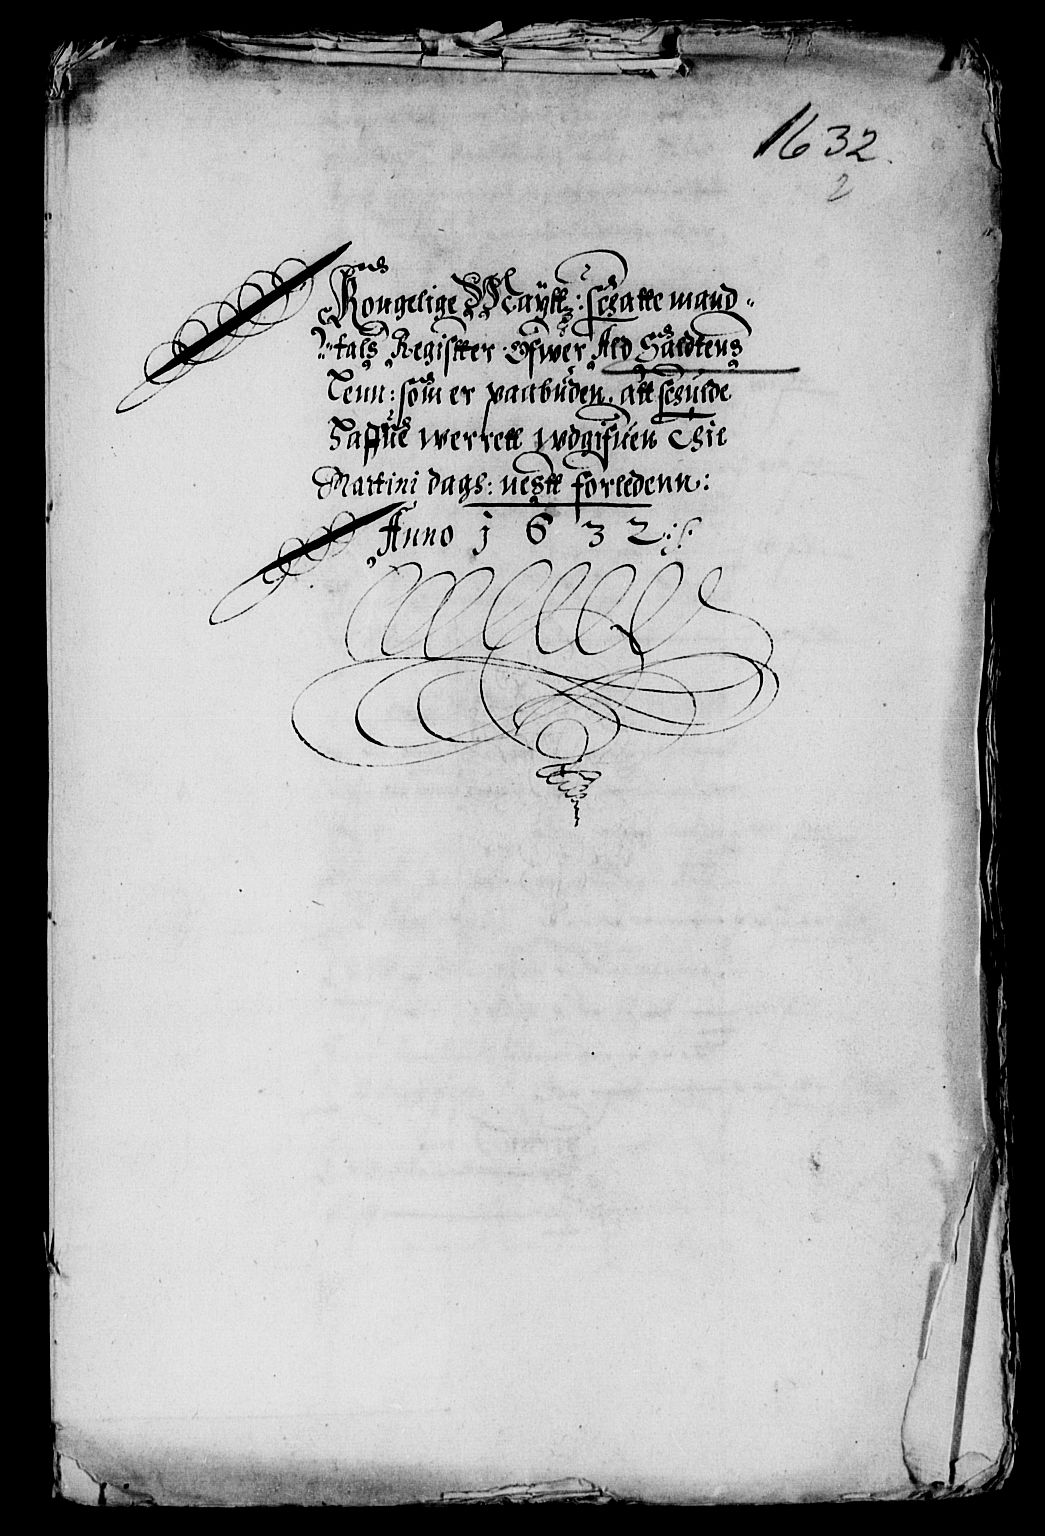 1632.
2
Kongelige Maÿtt: schatte mand-
tals Register Ofwer Ald Saldtens
Lenn: som er paabuden. att schulde
Haffue werrett wdgifuen Thil
Martini dags: nestt forledenn:
Anno 1632